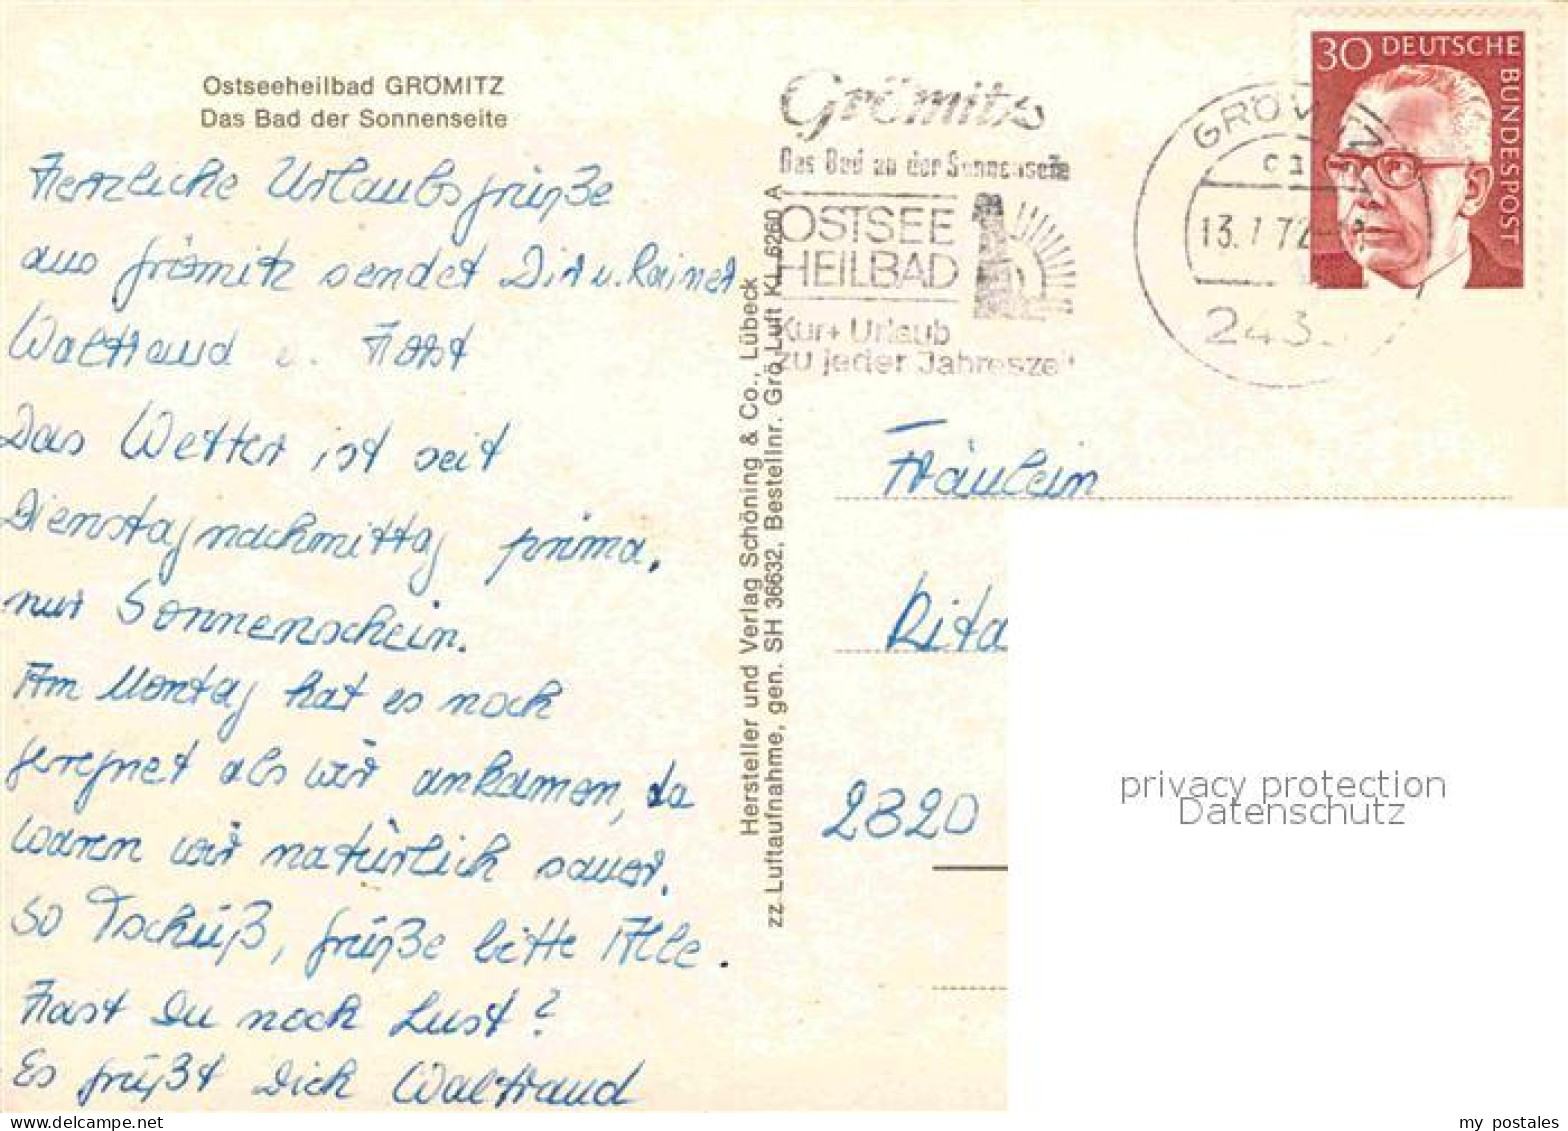 Ostseeheilbad GRÖMITZ
Das Bad der Sonnenseite
Herzliche Urlaubsgrüße
aus Grömitz sendet Dir u. Rainer
Waltraud u. Horst
Das Wetter ist seit
Dienstagnachmittag prima,
nur Sonnenschein.
Am Montag hat es noch
geregnet als wir ankamen, da
waren wir natürlich sauer.
So Tschüß, grüße bitte Alle.
Hast Du noch Lust?
Es grüßt Dich Waltraud
Hersteller und Verlag Schöning & Co., Lübeck
zz Luftaufnahme, gen. SH 36632, Bestellnr. Grö Luft KL 6260 A
Grömitz
Das Bad an der Sonnenseite
OSTSEE
HEILBAD
Kur + Urlaub
zu jeder Jahreszeit
GRÖM
13.7.72
243
30 DEUTSCHE
BUNDESPOST
Fräulein
Rita
2820
privacy protection
Datenschutz
my postales